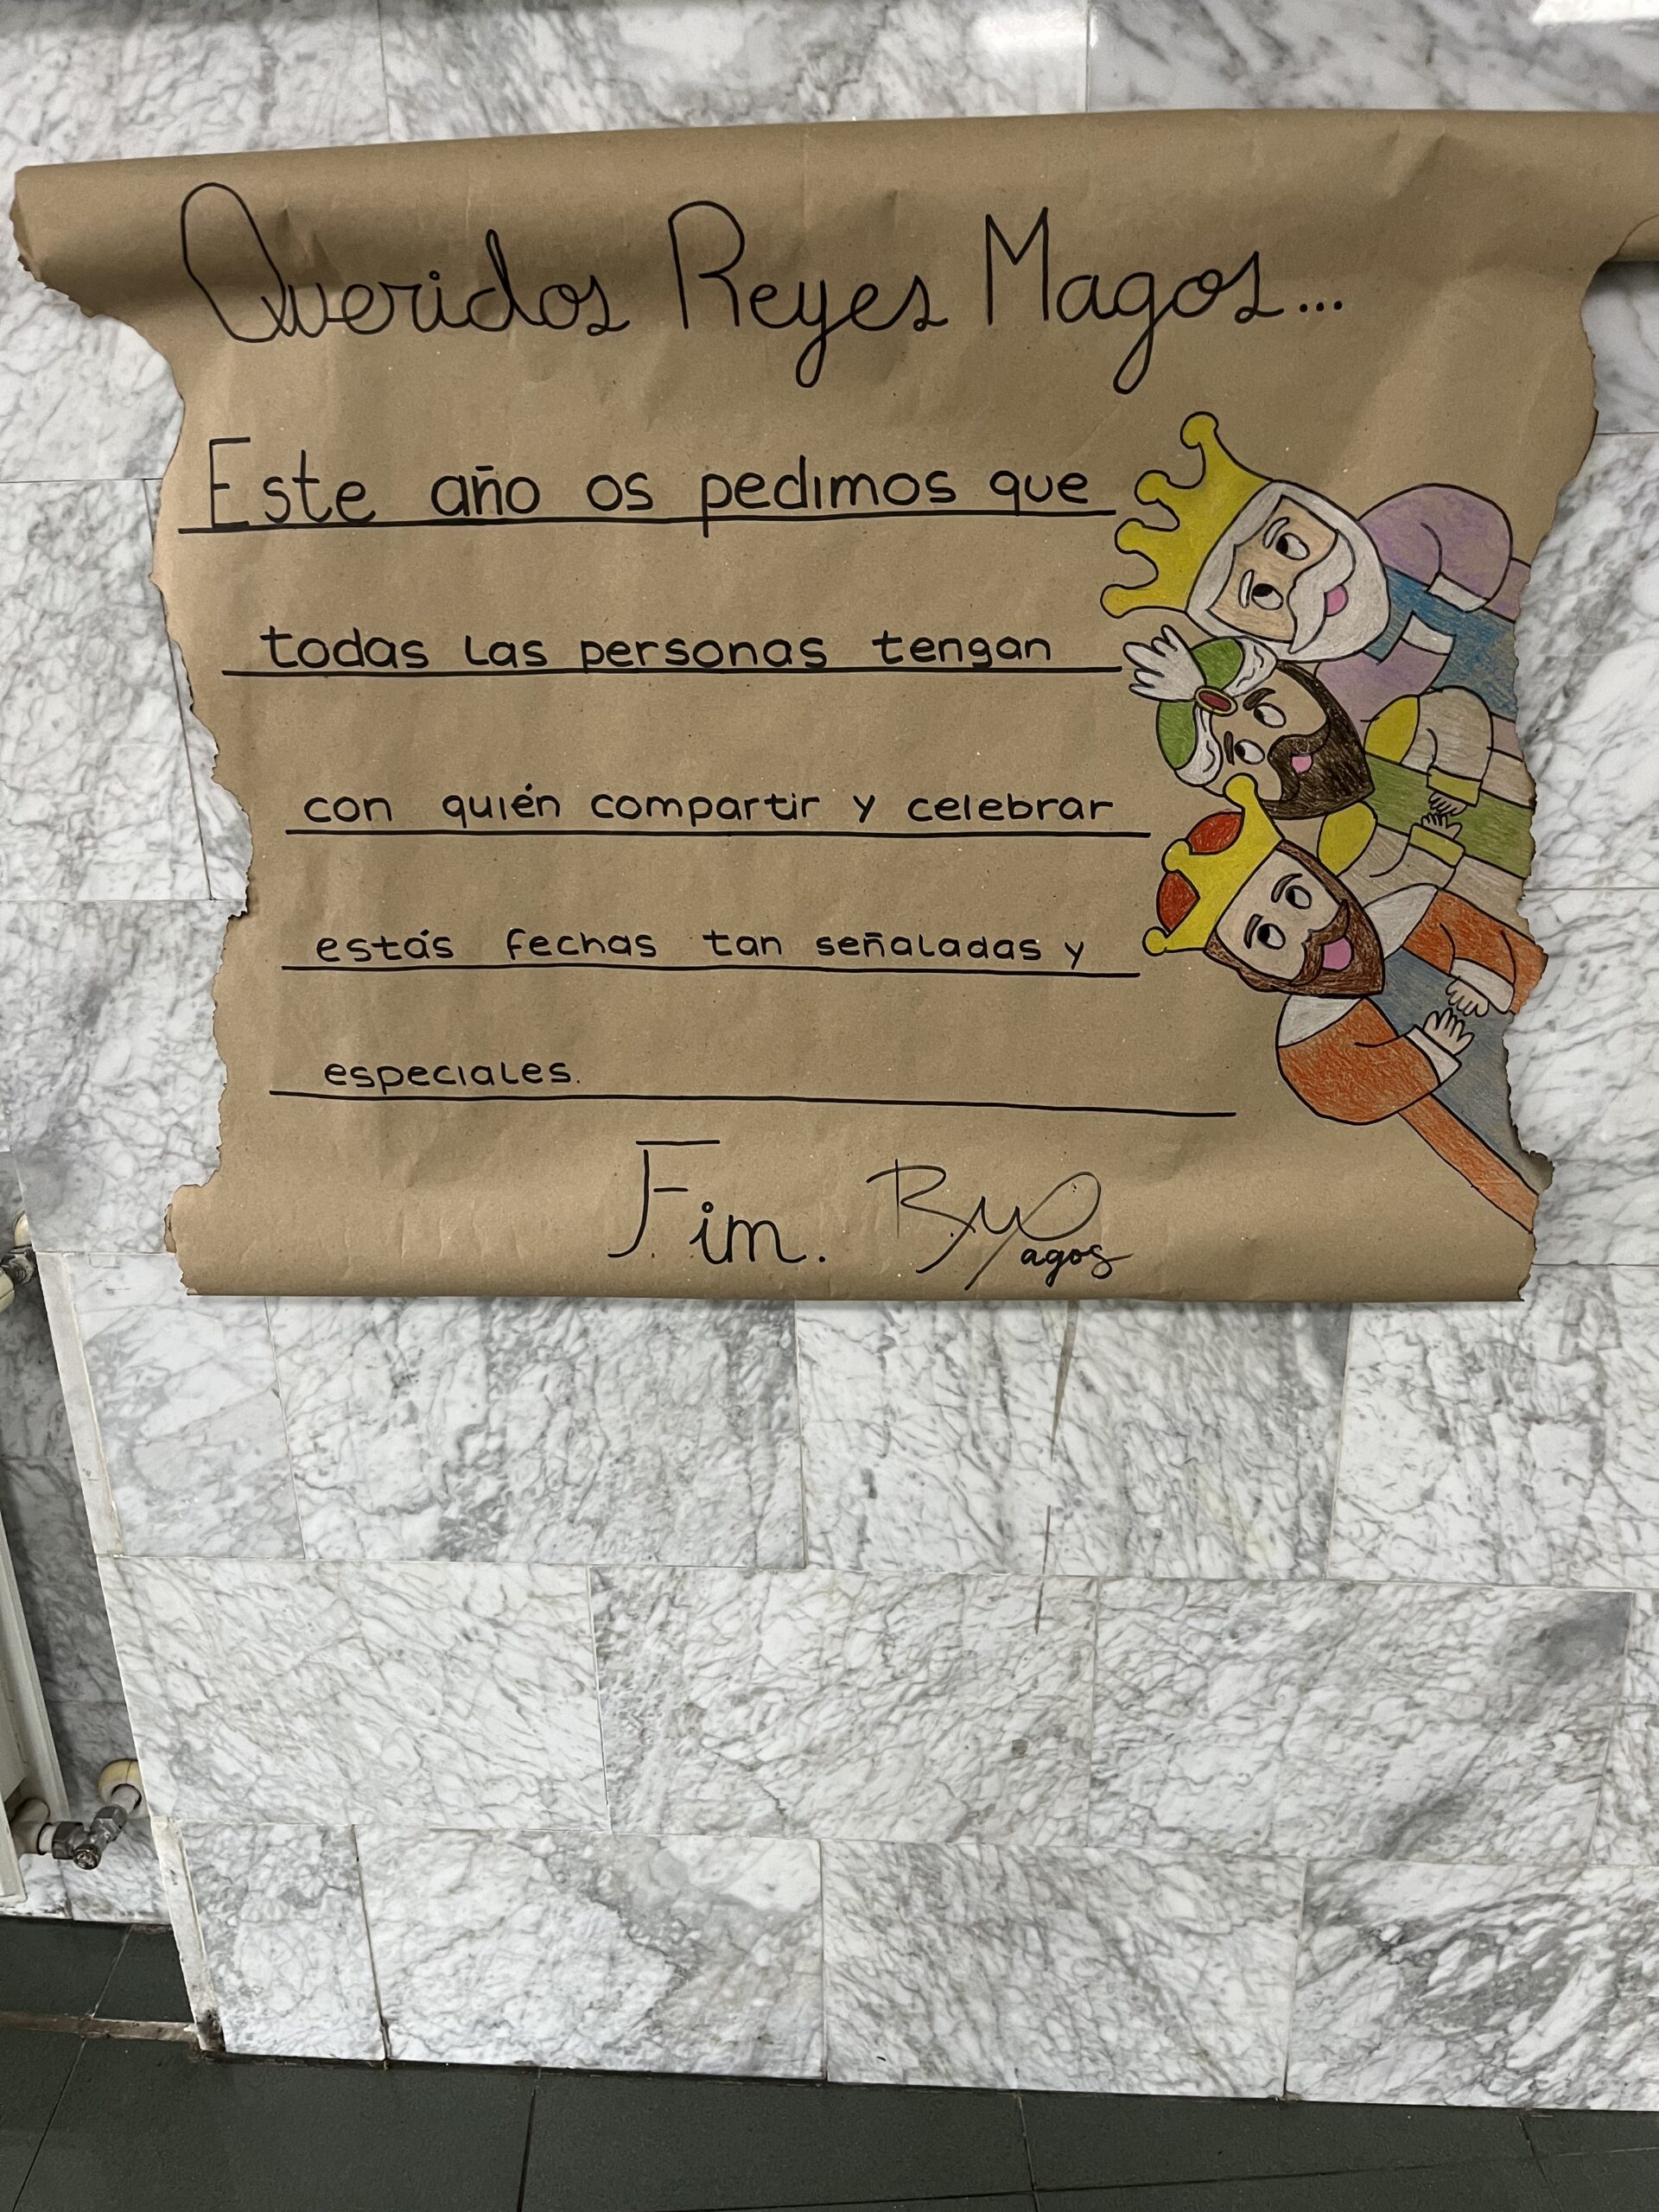 Queridos Reyes Magos...
Este año os pedimos que
todas las personas tengan
con quién compartir y celebrar
estás fechas tan señaladas y
especiales.
Fim. R.Magos